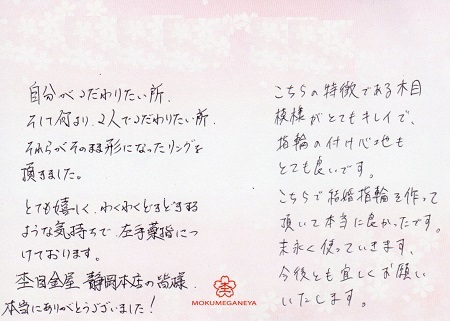 自分がこだわりたい所、
そして何より、2人でこだわりたい所、
それらがそのまま形になったリングを
頂きました。
とても嬉しく、わくわくどきどきする
ような気持ちで、左手薬指につ
けております。
杢目金屋 静岡本店の皆様、
本当にありがとうございました！
こちらの特徴である木目
模様がとてもキレイで、
指輪の付け心地も
とても良いです。
こちらで結婚指輪を作って
頂いて本当に良かったです。
末永く使っていきます。
今後とも宜しくお願い
いたします。
MOKUMEGANEYA